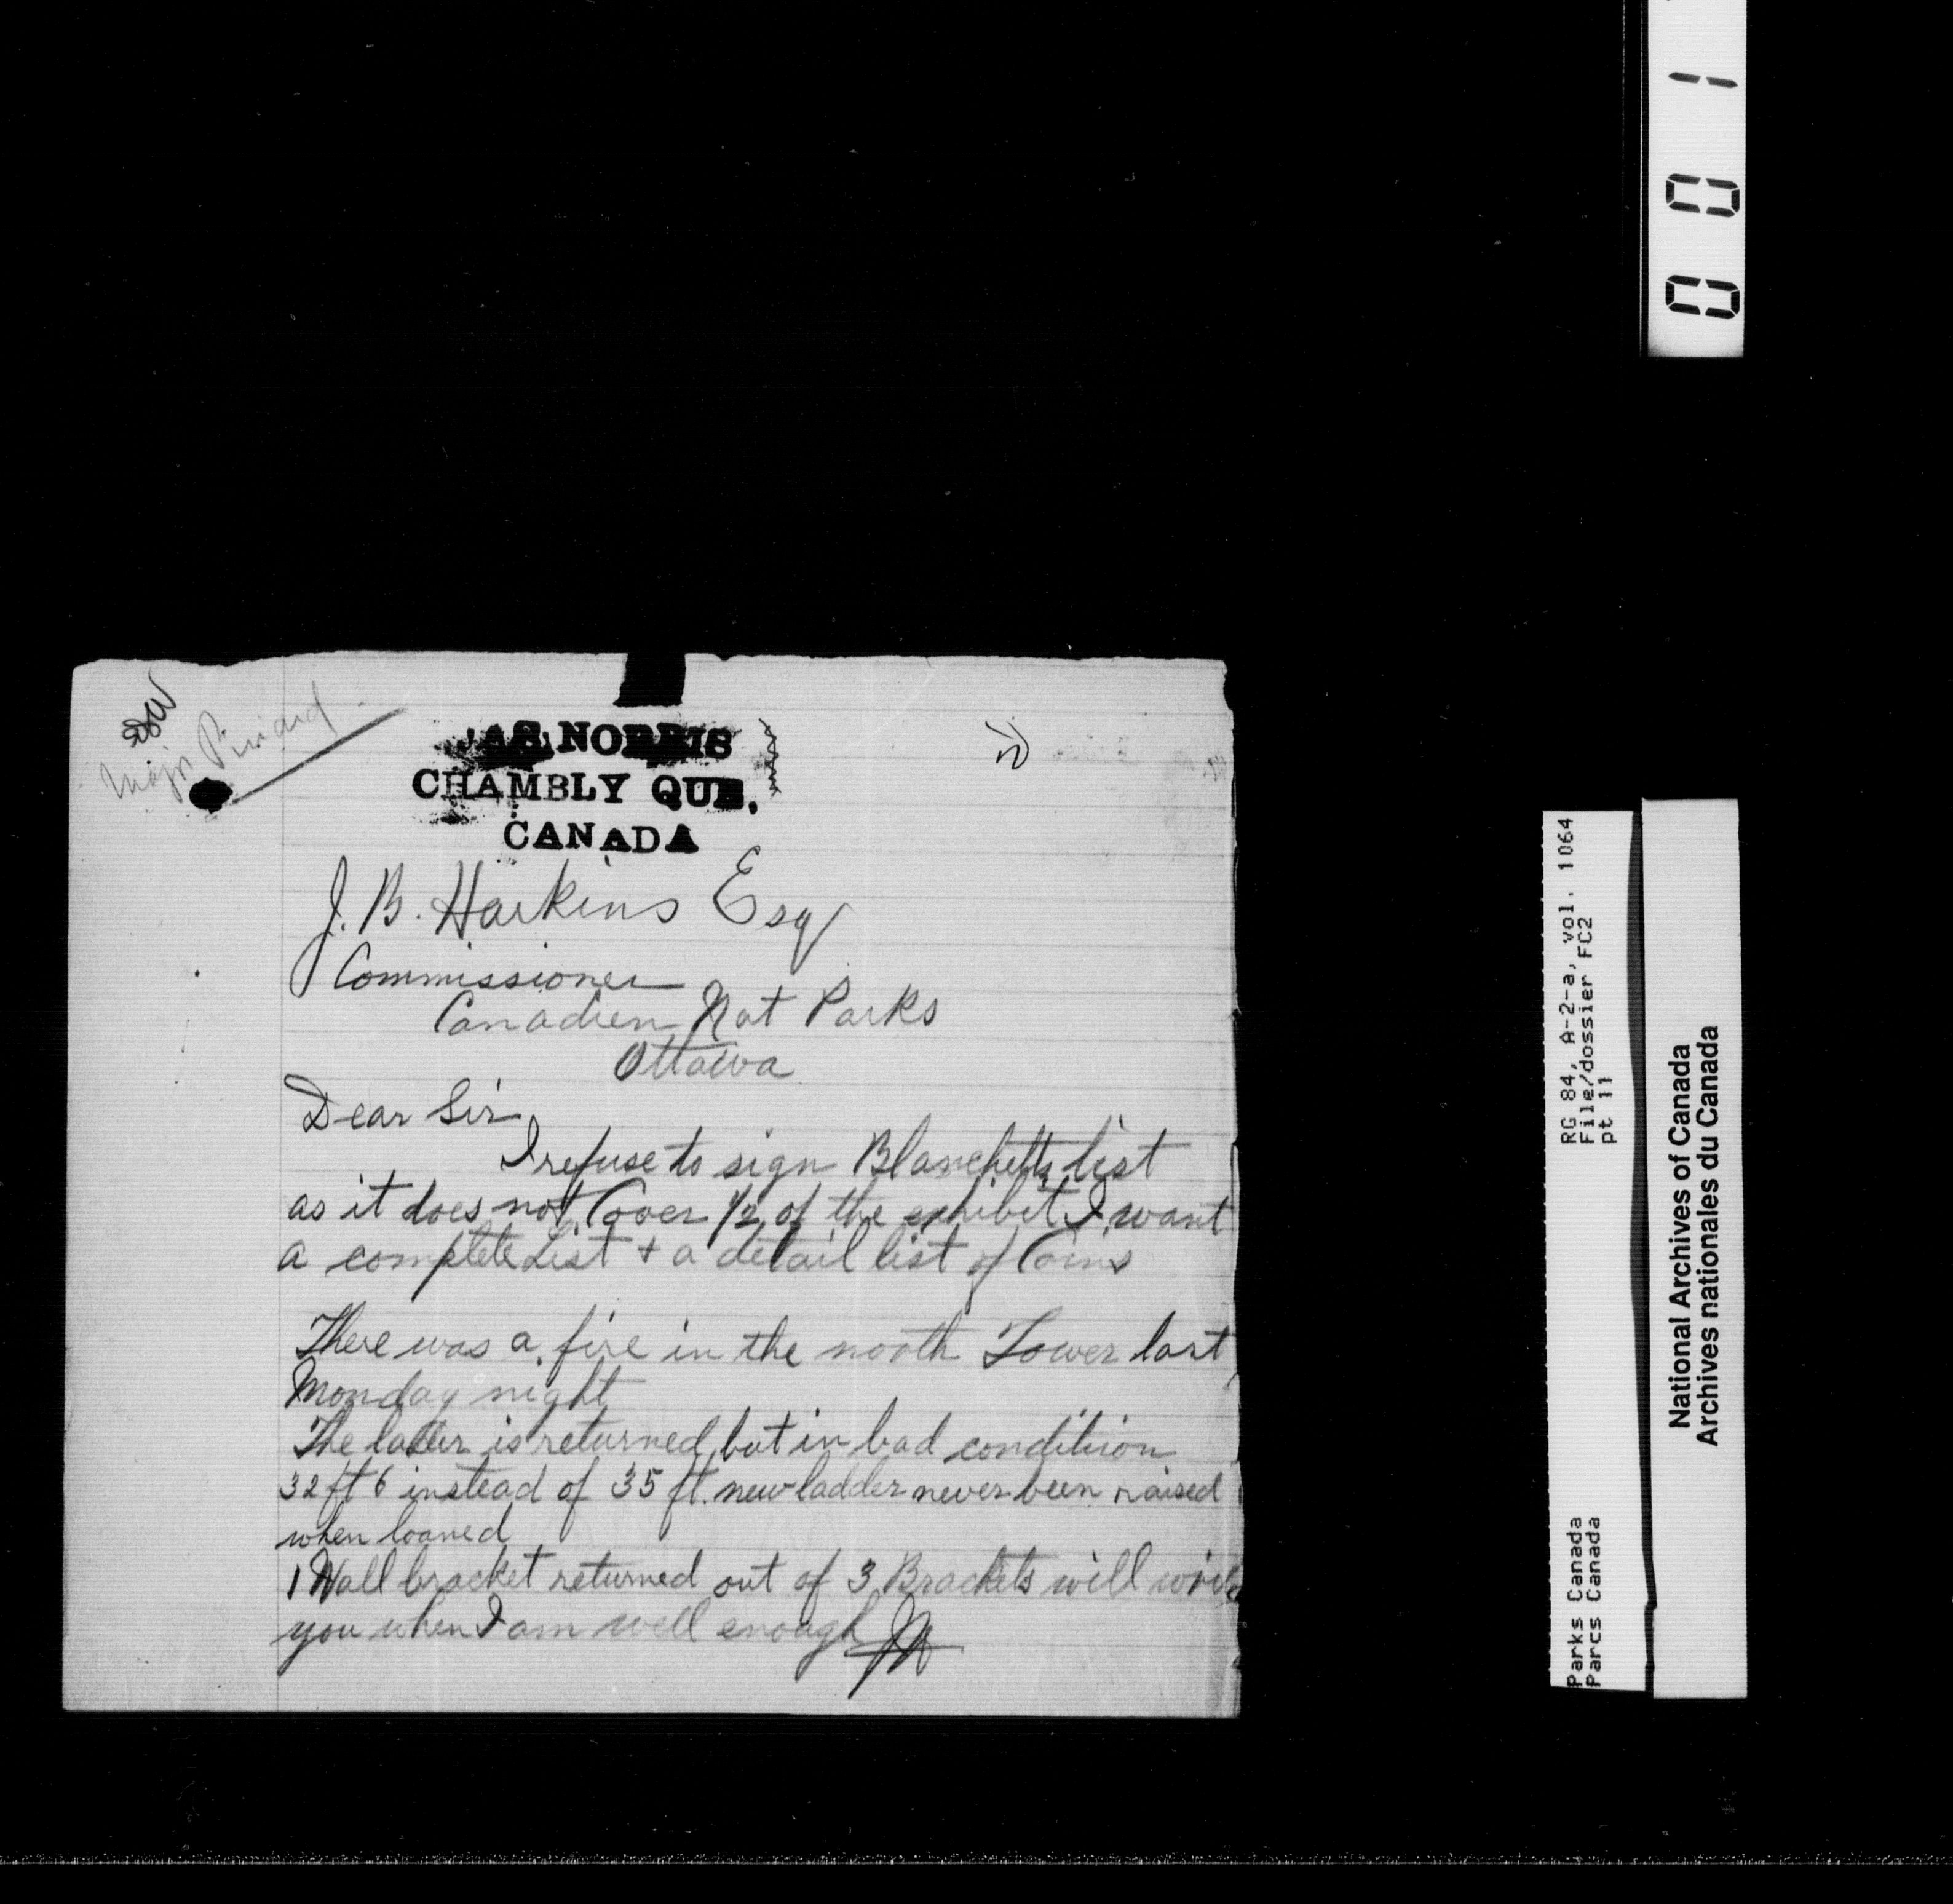 001
Major Pinard
JAS NORRIS
CHAMBLY QUE,
CANADA
J. B. Harkins Esq
Commissioner
Canadien Nat Parks
Ottawa
Dear Sir
I refuse to sign Blanchetts list
as it does not Cover 1/2 of the exhibit I want
a complete List + a detail list of Coins
There was a fire in the north Tower last
Monday night
The lader is returned but in bad condition
32 ft 6 instead of 35 ft. new ladder never been raised
when loaned
1 Wall bracket returned out of 3 Brackets will write
you when I am well enough JN
RG 84, A-2-a, vol. 1064
File/dossier FC2
pt 11
Parks Canada
Parcs Canada
National Archives of Canada
Archives nationales du Canada